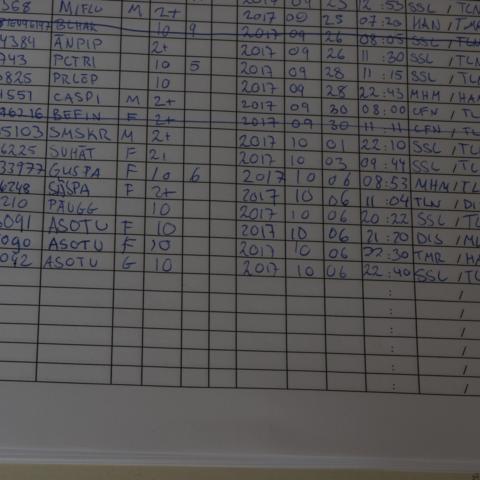 368 MIFLU M 2+ 2017 09 25 12:53 SSL / TLN
BCHAR 10 9 2017 09 25 07:20 HAN / TMA
4384 ANPIP 2+ 2017 09 26 08:05 SSL / TLN
943 PCTRI 10 5 2017 09 26 11:30 SSL / TLN
0825 PRLEP 10 2017 09 28 11:15 SSL / TLN
1551 CASPI M 2+ 2017 09 28 22:43 MHM / HAN
46216 BEFIN F 2+ 2017 09 30 08:00 CFN / TL
65103 SMSKR M 2+ 2017 09 30 11:11 CFN / TL
6225 SUHAT F 2+ 2017 10 01 22:10 SSL / TL
33977 GUSPA F 10 6 2017 10 03 09:44 SSL / TL
6248 SISPA F 2+ 2017 10 06 08:53 MHM / TL
210 PAUGG 10 2017 10 06 11:04 TLN / DI
091 ASOTU F 10 2017 10 06 20:22 SSL / TL
090 ASOTU F 10 2017 10 06 21:20 DIS / ML
092 ASOTU G 10 2017 10 06 22:30 TMR / HA
2017 10 06 22:40 SSL / TL
: /
: /
: /
: /
: /